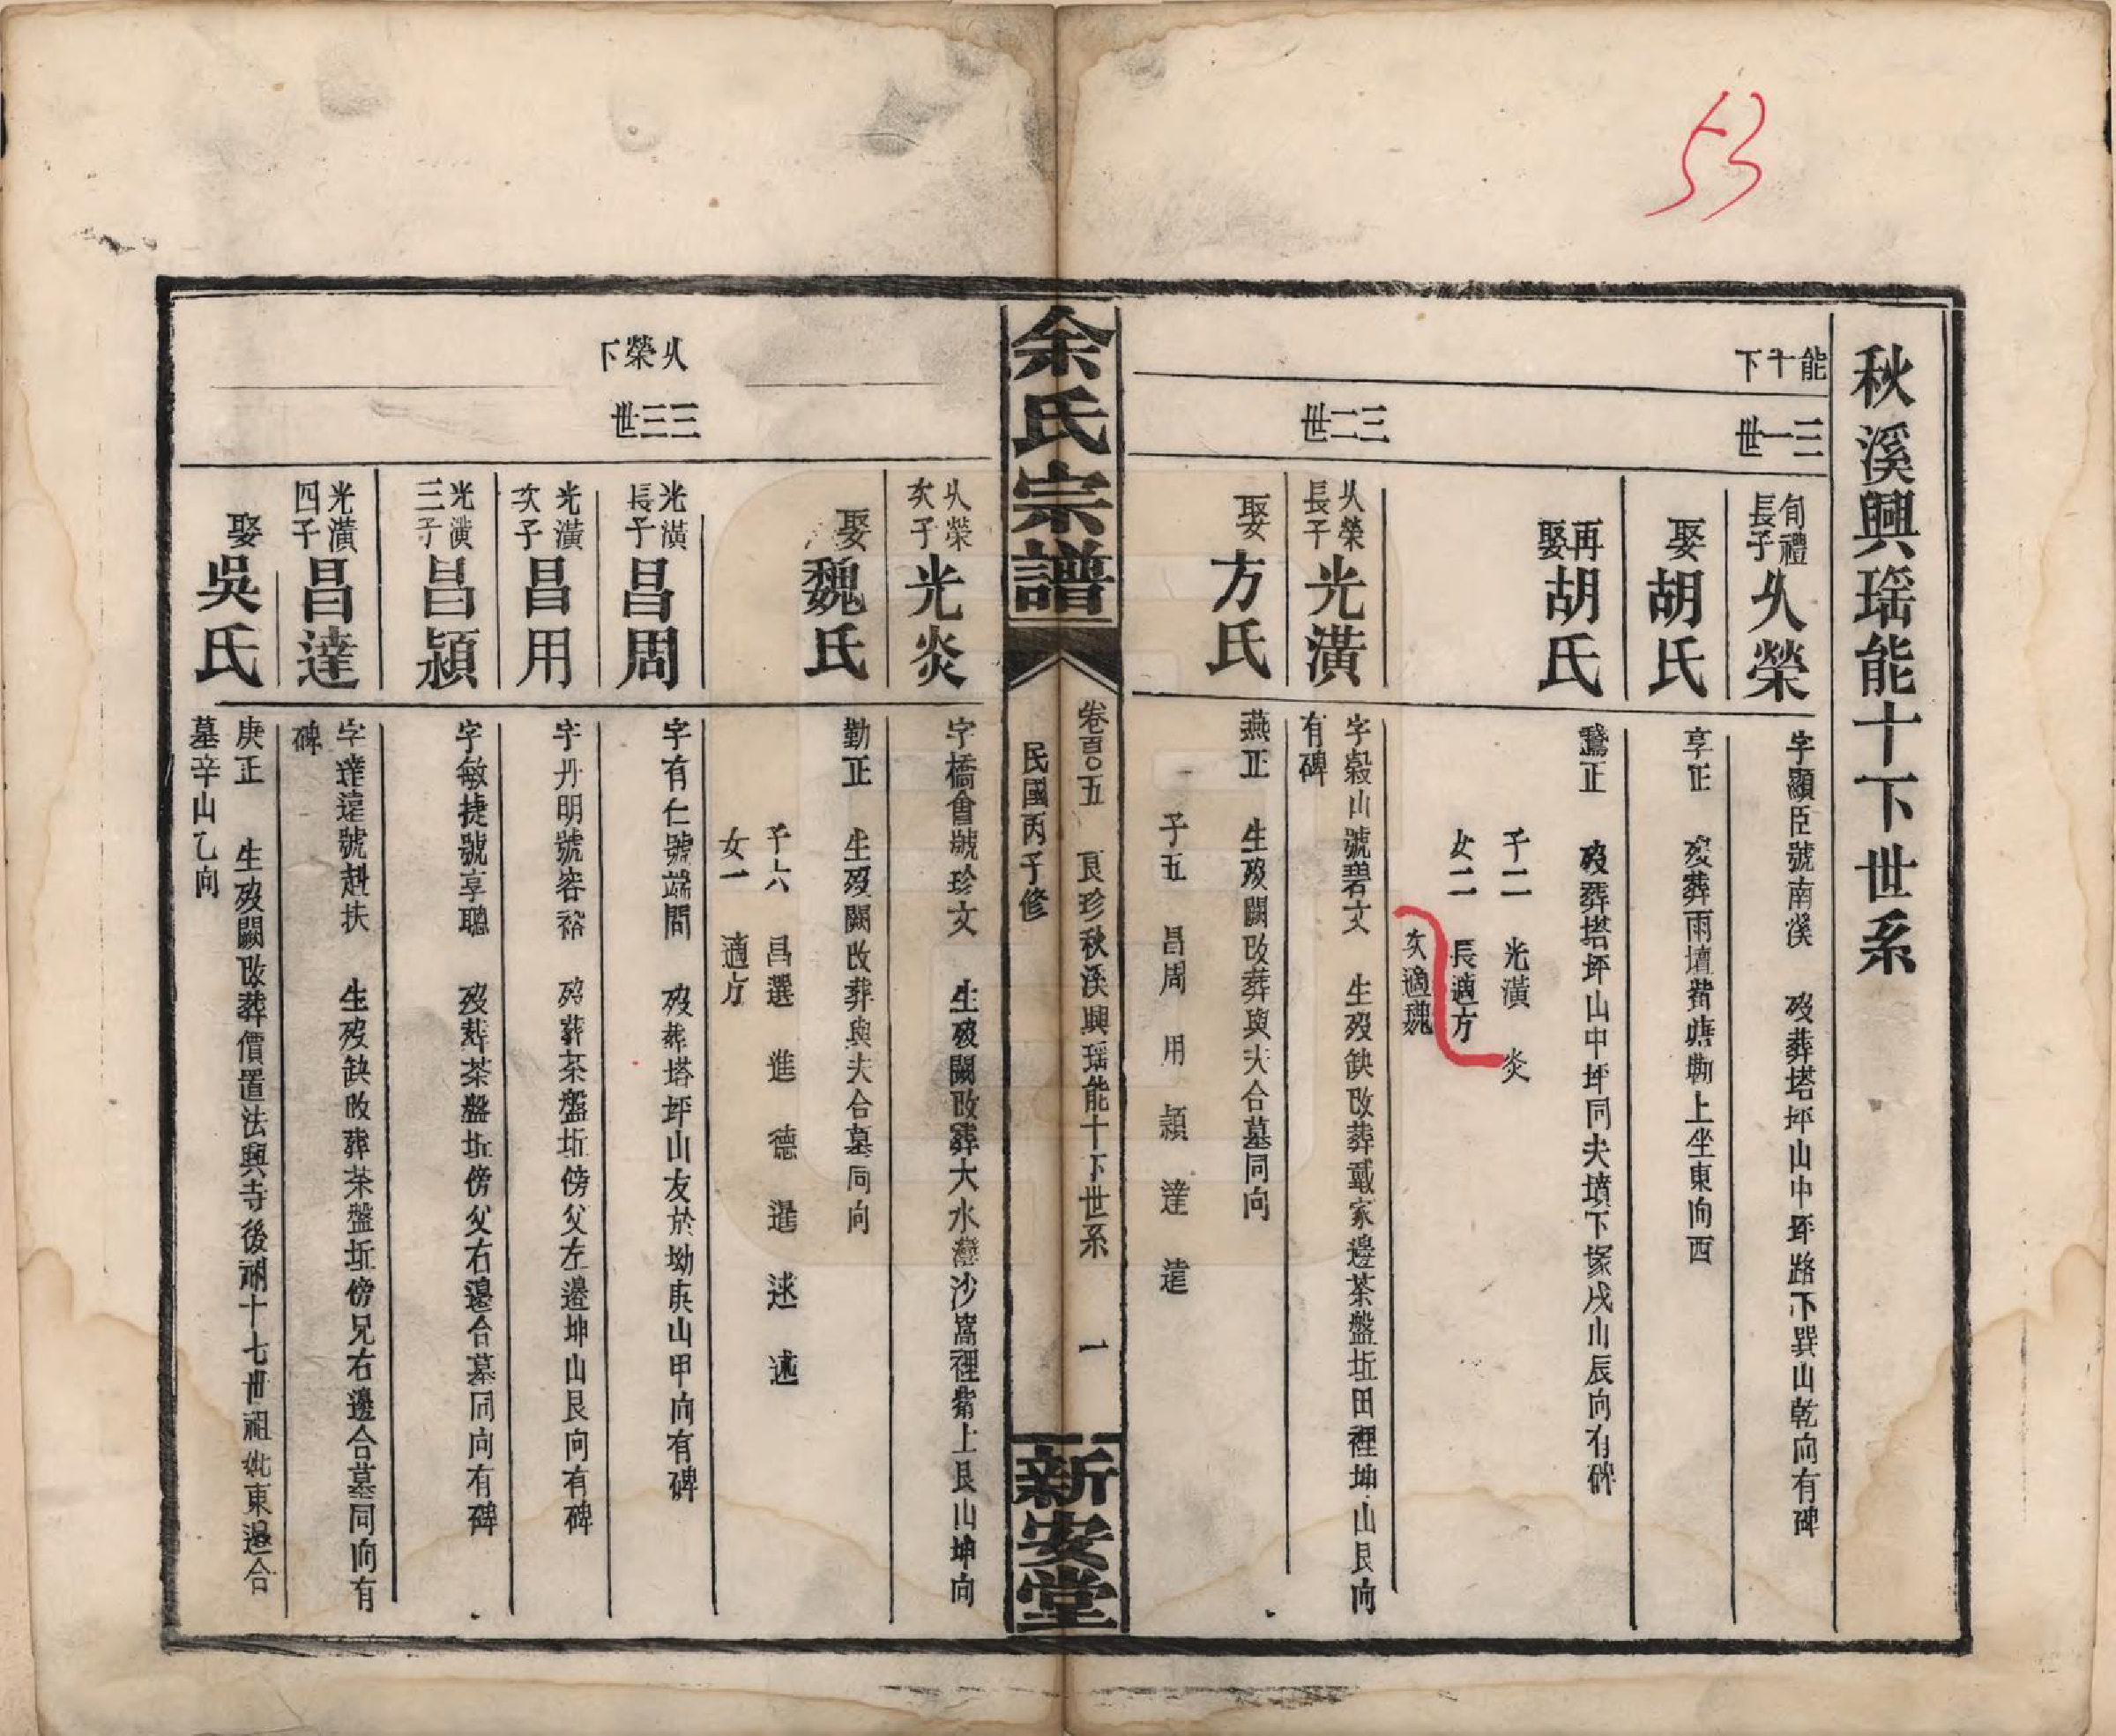 53
秋溪興瑶能十下世系
能十下
三一世
旬禮長子 乆榮 字顯臣號南溪 歿葬塔坪山中坪路下巽山乾向有碑
娶 胡氏 享正 歿葬雨壇背塘墈上坐東向西
再娶 胡氏 鵞正 歿葬塔坪山中坪同夫墳下塚戌山辰向有碑
子二 光潢 炎
女二 長適方
次適魏
三二世
乆榮長子 光潢 字穀山號碧文 生歿缺改葬戴家邊茶盤坵田裡坤山艮向
有碑
娶 方氏 燕正 生歿闕改葬與夫合墓同向
子五 昌周 用 頴 達 遠
余氏宗譜
卷百〇五 良珍秋溪興瑶能十下世系 一
民國丙子修
新安堂
乆榮下
三三世
乆榮次子 光炎 字橋會號珍文 生歿闕改葬大水灣沙窩裡背上艮山坤向
娶 魏氏 勤正 生歿闕改葬與夫合墓同向
子六 昌選 進 德 暹 逑 述
女一 適方
光潢長子 昌周 字有仁號端問 歿葬塔坪山友於坳庚山甲向有碑
光潢次子 昌用 字丹明號容裕 歿葬茶盤坵傍父左邊坤山艮向有碑
光潢三子 昌頴 字敏捷號享聰 歿葬茶盤坵傍父右邊合墓同向有碑
光潢四子 昌達 字達遠號赳扶 生歿缺改葬茶盤坵傍兄右邊合墓同向有
碑
娶 吳氏 庚正 生歿闕改葬價置法興寺後祔十七世祖妣東邊合
墓辛山乙向